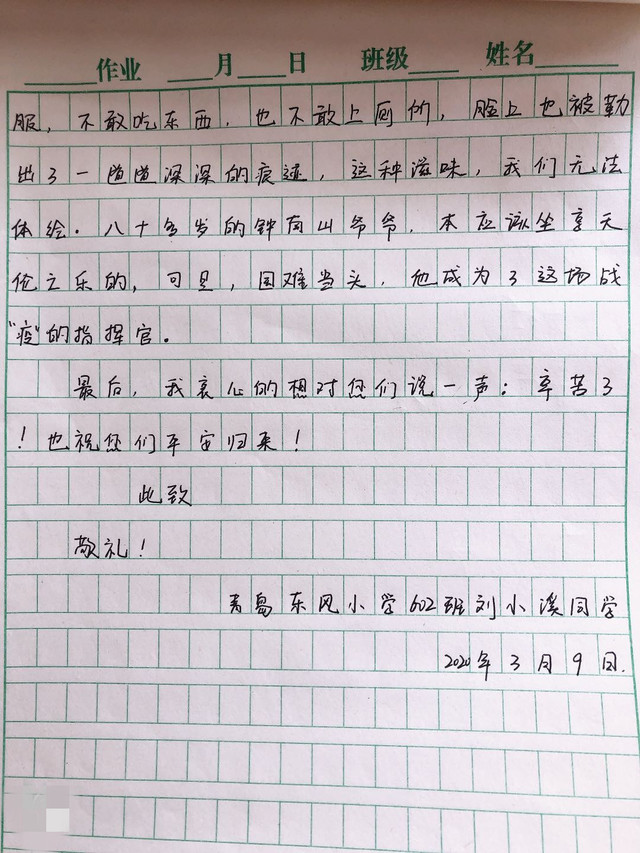 作业 月 日 班级 姓名
服，不敢吃东西，也不敢上厕所，脸上也被勒
出了一道道深深的痕迹，这种滋味，我们无法
体绘。八十多岁的钟南山爷爷，本应该坐享天
伦之乐的，可是，国难当头，他成为了这场战
“疫”的指挥官。
最后，我衷心的想对您们说一声：辛苦了
！也祝您们平安归来！
此致
敬礼！
青岛东风小学602班刘小溪同学
2020年3月9日.